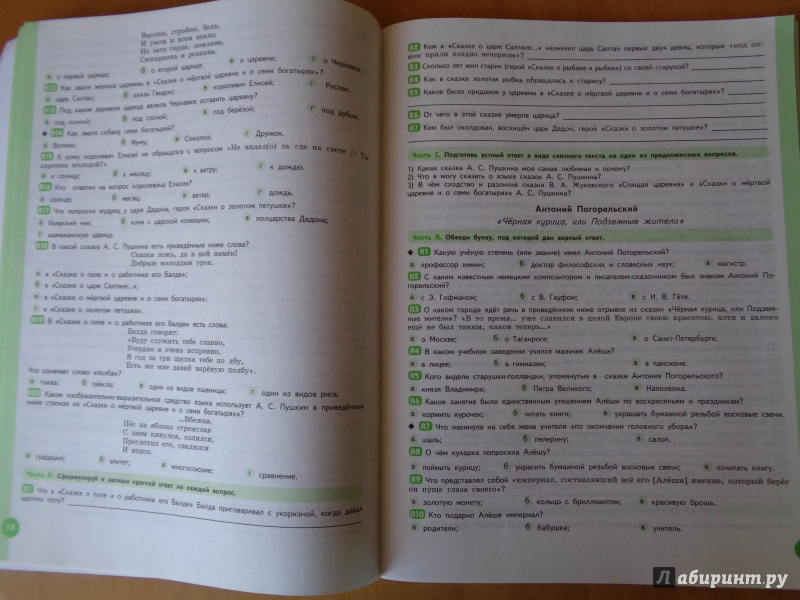 Высока, стройна, бела,
И умом и всем взяла;
Но зато горда, ломлива,
Своенравна и ревнива.
а о первой царице; б о второй царице; в о царевне; г о Чернавке.
А12 Как звали жениха царевны в «Сказке о мёртвой царевне и о семи богатырях»?
а царь Салтан; б князь Гвидон; в королевич Елисей; г Руслан.
А13 Под каким деревом царица велела Чернавке оставить царевну?
а под осиной; б под сосной; в под берёзой; г под дубом.
А14 Как звали собаку семи богатырей?
а Волчок; б Муму; в Соколко; г Дружок.
А15 К кому королевич Елисей не обращался с вопросом «Не видал(о) ль где на свете // Ты
царевны молодой?»
а к солнцу; б к месяцу; в к ветру; г к дождю.
А16 Кто ответил на вопрос королевича Елисея?
а солнце; б месяц; в ветер; г дождь.
А17 Что попросил мудрец у царя Дадона, героя «Сказки о золотом петушке»?
а боярский чин; б коня с царской конюшни; в полцарства Дадона;
г шамаханскую царицу.
А18 В какой сказке А. С. Пушкина есть приведённые ниже слова?
Сказка ложь, да в ней намёк!
Добрым молодцам урок.
а в «Сказке о попе и о работнике его Балде»;
б в «Сказке о царе Салтане...»;
в в «Сказке о мёртвой царевне и о семи богатырях»;
г в «Сказке о золотом петушке».
А19 В «Сказке о попе и о работнике его Балде» есть слова:
Балда говорит:
«Буду служить тебе славно,
Усердно и очень исправно,
В год за три щелка тебе по лбу,
Есть же мне давай варёную полбу».
Что означает слово «полба»?
а тыква; б свёкла; в один из видов пшеницы; г один из видов риса.
А20 Какое изобразительно-выразительное средство языка использует А. С. Пушкин в приведённых
ниже строках из «Сказки о мёртвой царевне и о семи богатырях»?
...Вбежав,
Пёс на яблоко стремглав
С лаем кинулся, озлился,
Проглотил его, свалился
И издох.
а градация; б эпитет; в многосоюзие; г сравнение.
Часть В. Сформулируй и запиши краткий ответ на каждый вопрос.
В1 Что в «Сказке о попе и о работнике его Балде» Балда приговаривал с укоризной, когда давал
щелчки попу?
18
В2 Кем в «Сказке о царе Салтане...» назначил царь Салтан первых двух девиц, которые «под ок-
ном пряли поздно вечерком»?
В3 Сколько лет жил старик (герой «Сказки о рыбаке и рыбке») со своей старухой?
В4 Как в сказке золотая рыбка обращалась к старику?
В5 Каково было приданое у царевны в «Сказке о мёртвой царевне и о семи богатырях»?
В6 От чего в этой сказке умерла царица?
В7 Кем был околдован, восхищён царь Дадон, герой «Сказки о золотом петушке»?
Часть С. Подготовь устный ответ в виде связного текста на один из предложенных вопросов.
1) Какая сказка А. С. Пушкина моя самая любимая и почему?
2) Что я могу сказать о языке сказок А. С. Пушкина?
3) В чём сходство и различия сказки В. А. Жуковского «Спящая царевна» и «Сказки о мёртвой
царевне и о семи богатырях» А. С. Пушкина?
Антоний Погорельский
«Чёрная курица, или Подземные жители»
Часть А. Обведи букву, под которой дан верный ответ.
А1 Какую учёную степень (или звание) имел Антоний Погорельский?
а профессор химии; б доктор философских и словесных наук; в магистр.
А2 С каким известным немецким композитором и писателем-сказочником был знаком Антоний По-
горельский?
а с Э. Гофманом; б с В. Гауфом; в с И. В. Гёте.
А3 О каком городе идёт речь в приведённом ниже отрывке из сказки «Чёрная курица, или Подзем-
ные жители»? «В то время... уже славился в целой Европе своею красотою, хотя и далеко
ещё не был таким, каков теперь...»
а о Москве; б о Таганроге; в о Санкт-Петербурге.
А4 В каком учебном заведении учился мальчик Алёша?
а в лицее; б в гимназии; в в пансионе.
А5 Кого видели старушки-голландки, упомянутые в сказке Антония Погорельского?
а князя Владимира; б Петра Великого; в Наполеона.
А6 Какое занятие было единственным утешением Алёши по воскресеньям и праздникам?
а кормить курочек; б читать книги; в украшать бумажной резьбой восковые свечи.
А7 Что накинула на себя жена учителя «по окончании головного убора»?
а шаль; б пелерину; в салоп.
А8 О чём кухарка попросила Алёшу?
а поймать курицу; б украсить бумажной резьбой восковые свечи; в почитать книгу.
А9 Что представлял собой «империал, составлявший всё его [Алёши] имение, который берёг
он пуще глаза своего»?
а золотую монету; б кольцо с бриллиантом; в красивую брошь.
А10 Кто подарил Алёше империал?
а родители; б бабушка; в учитель.
Лабиринт.ру